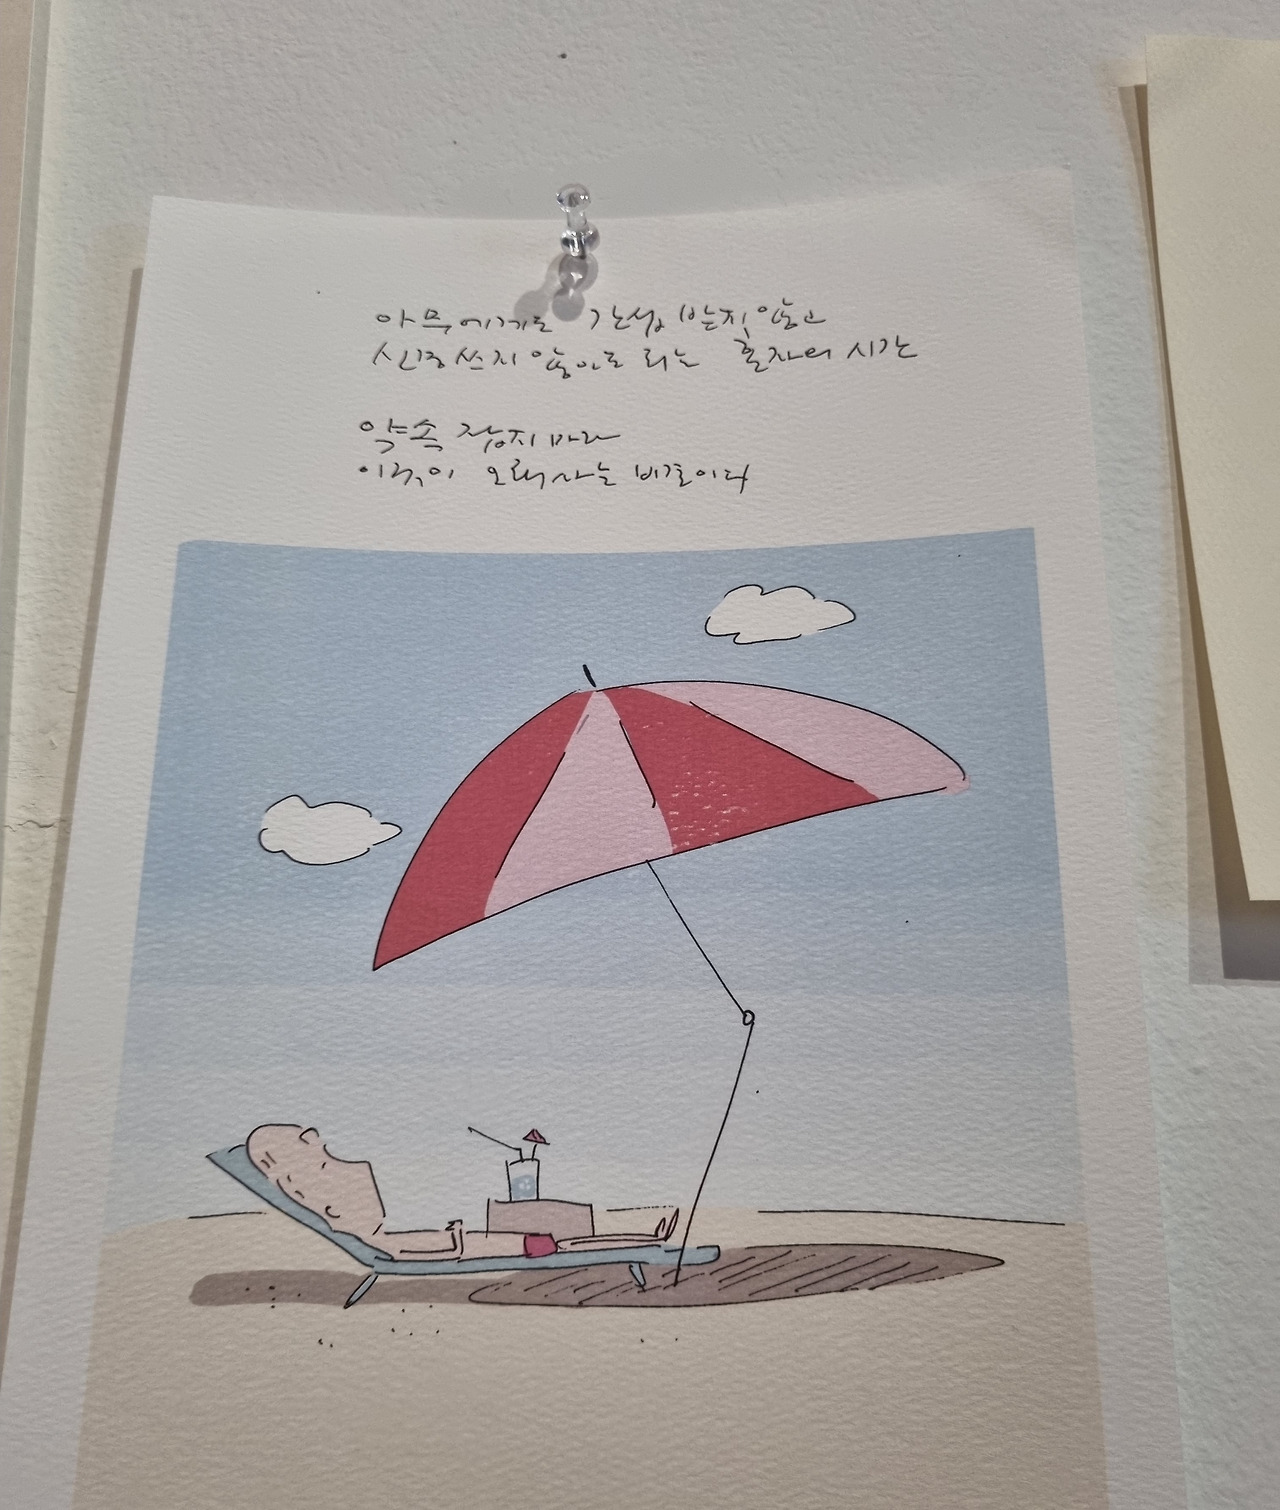 아무에게도 간섭 받지 않고
신경쓰지 않아도 되는 혼자의 시간
약속 잡지 마라
이것이 오래 사는 비결이다